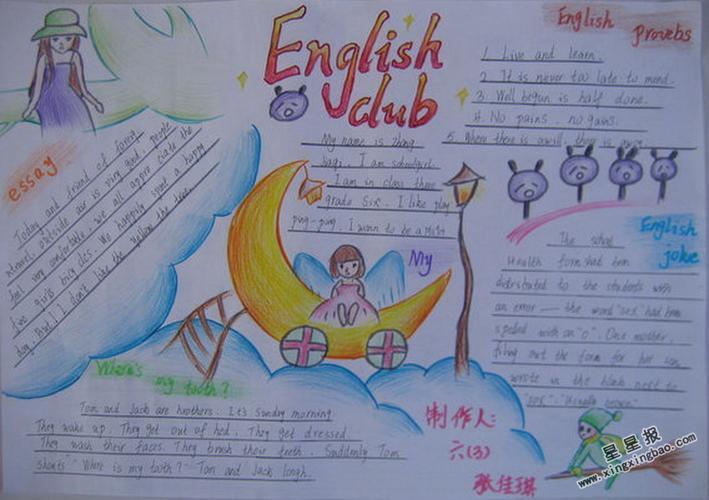 English
club
English
Provebs
1. Live and learn.
2. It is never too late to mend.
3. Well begun is half done.
4. No pains. no gains.
5. Where there is a will, there is away.
essay
Today and friend of
travel, outside air is very and people
feel very comfortable. we all appre ciate the
We happily spent a happy
day. But I don't like the the
My name is Zhang
I am schoolgirl.
I am in class three
grade Six. I like play
ping-pang. I wann to be a
My
English
joke
The school
Health form had been
distributed to the students with
an error — the word "sex" had been
spelled with an "o". One mother,
filing out the form for her son,
wrote in the blank next to
"sox". "Usually brown."
Where's
my tooth?
Tom and Jack are brothers. It's Sunday morning
They wake up. They get out of bed. They get dressed.
They wash their faces. They brush their teeth. Suddenly Tom
shouts" "Where is my tooth?" Tom and Jack
制作人:
六(3)
张佳琪
星星报
www.xingxingbao.com